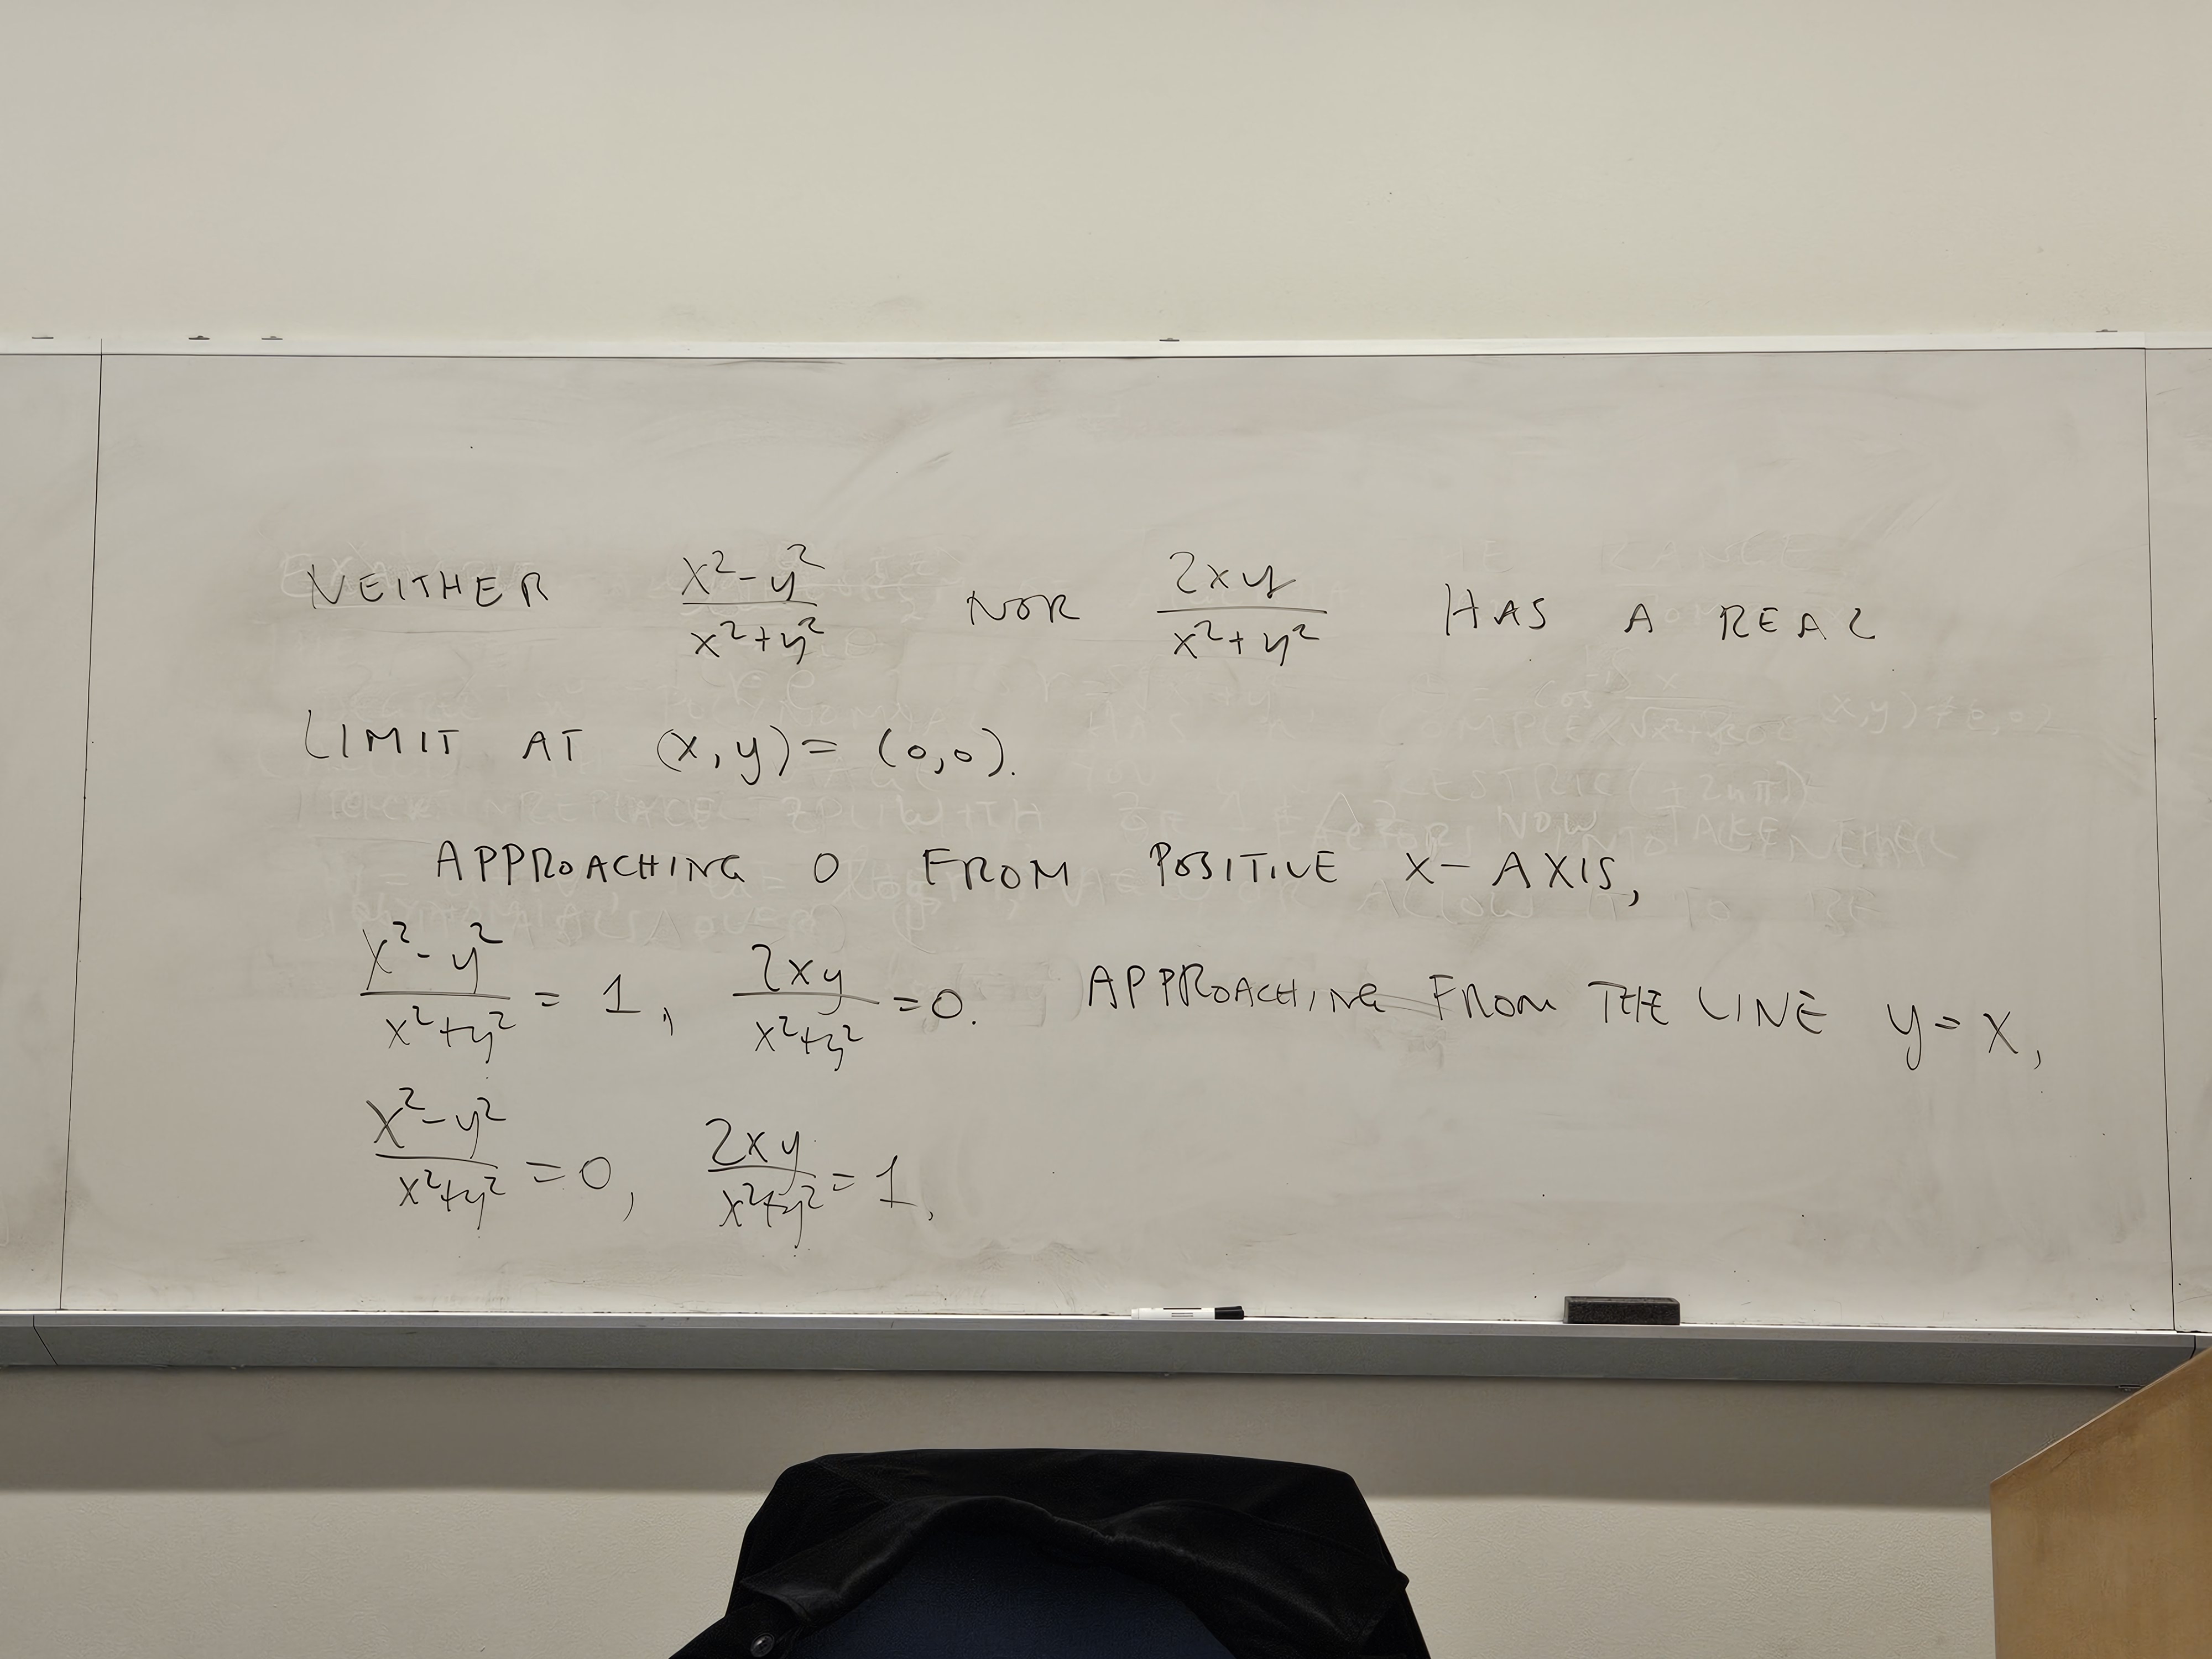 NEITHER (x²-y²)/(x²+y²) NOR 2xy/(x²+y²) HAS A REAL
LIMIT AT (x,y)=(0,0).
APPROACHING 0 FROM POSITIVE X-AXIS,
(x²-y²)/(x²+y²) = 1, 2xy/(x²+y²) =0. APPROACHING FROM THE LINE y=x,
(x²-y²)/(x²+y²) =0, 2xy/(x²+y²) = 1.